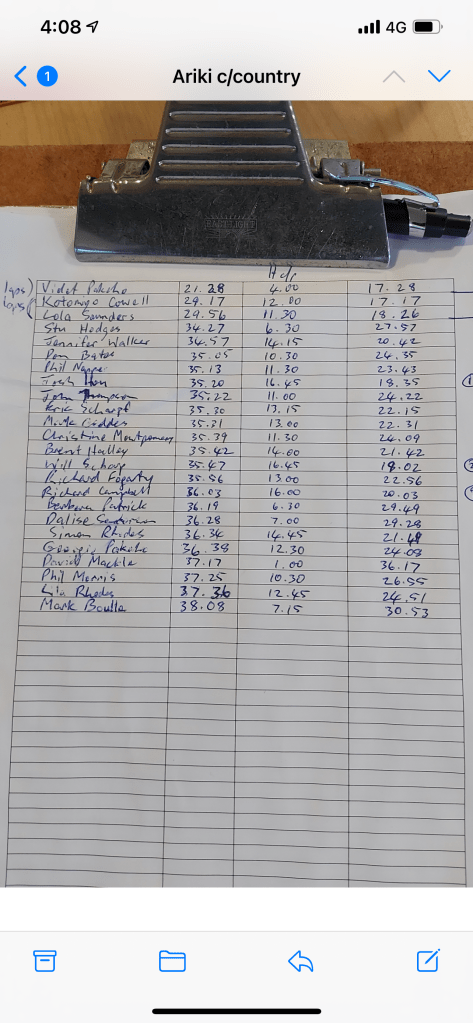 4:08 4G
1 Ariki c/country
EASTLIGHT
H'c/p
laps) Violet Pakoho 21.28 4.00 17.28
laps( Kotongo Cowell 29.17 12.00 17.17
Lola Saunders 29.56 11.30 18.26
Stu Hedges 34.27 6.30 27.57
Jennifer Walker 34.57 14.15 20.42
Dan Bates 35.05 10.30 24.35
Phil 35.13 11.30 23.43
Josh 35.20 16.45 18.35 1
John Thompson 35.22 11.00 24.22
Eric Scharpf 35.30 13.15 22.15
Mark Geddes 35.31 13.00 22.31
Christine Montgomery 35.39 11.30 24.09
Brent Halley 35.42 14.00 21.42
Will 35.47 16.45 19.02
Richard Fogarty 35.56 13.00 22.56
Richard Campbell 36.03 16.00 20.03
Barbara Patrick 36.19 6.30 29.49
Dalise 36.28 7.00 29.28
Simon Rhodes 36.34 14.45 21.49
Georgie 36.38 12.30 24.08
David 37.17 1.00 36.17
Phil Morris 37.25 10.30 26.55
Lia Rhodes 37.36 12.45 24.51
Mark Boulle 38.08 7.15 30.53